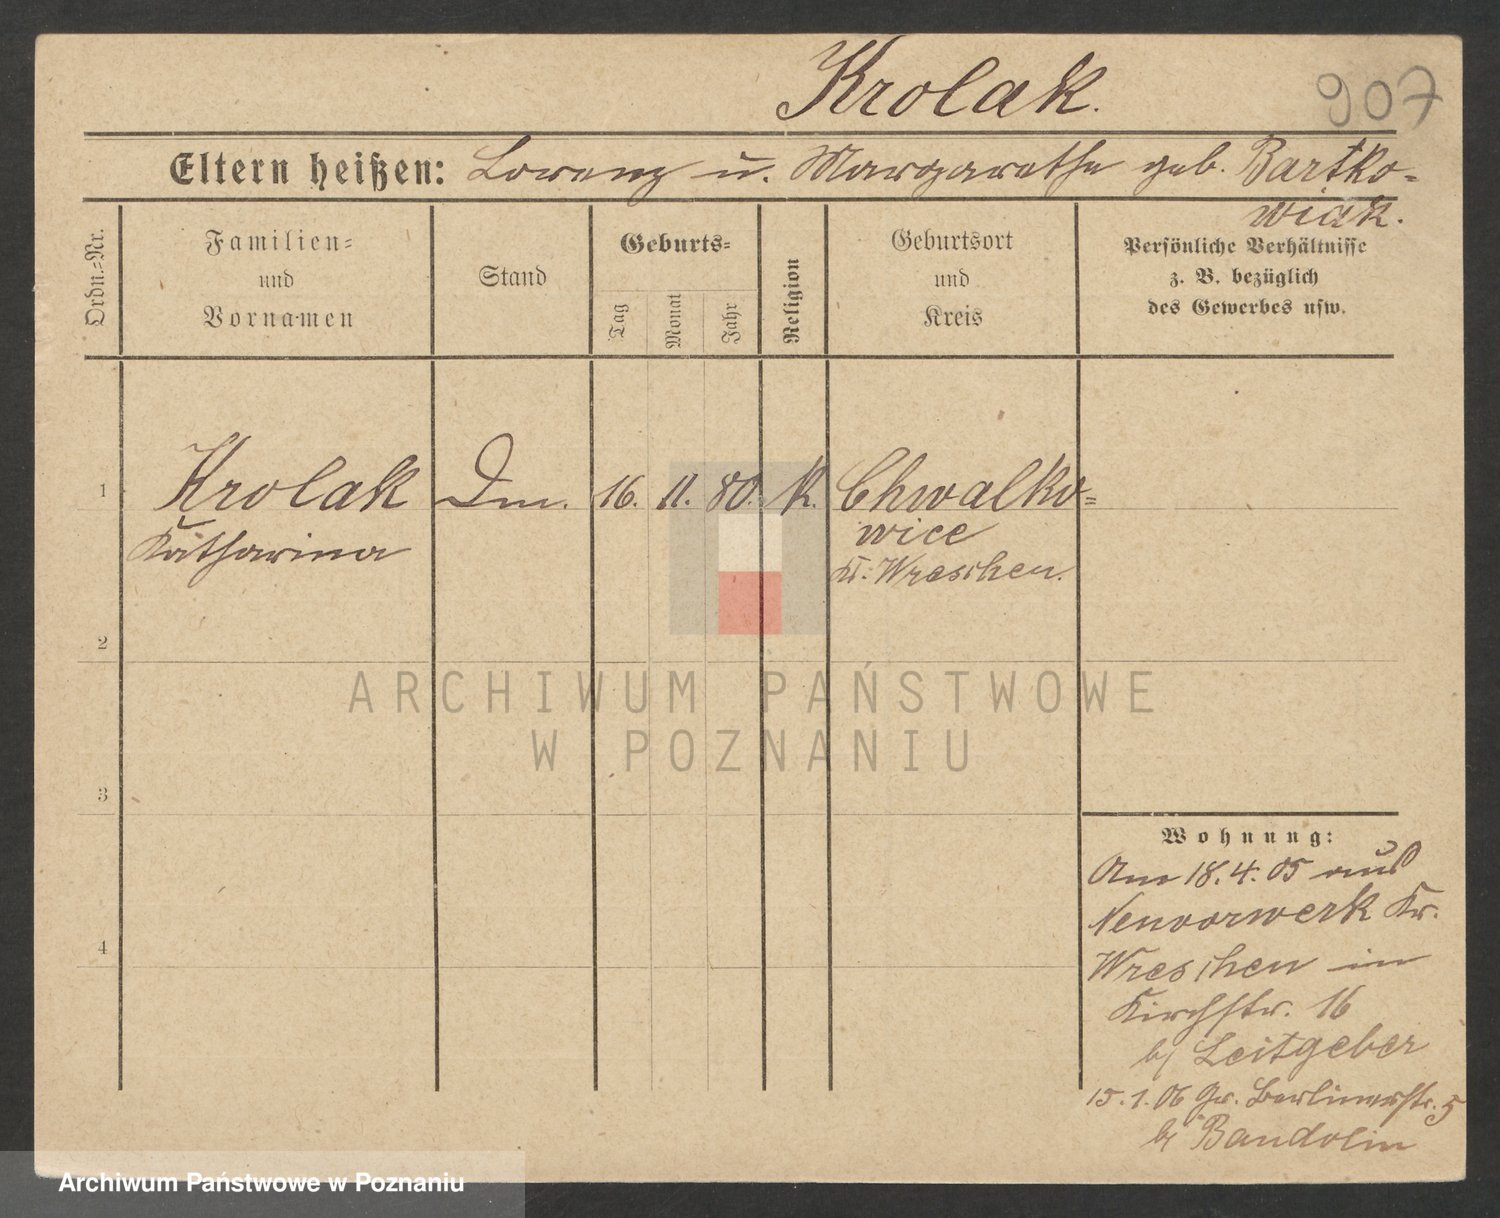 Krolak.
907
Eltern heißen: Lorenz u. Margarethe geb. Bartko-
wiak.
Ordn.-Nr.
Familien-
und
Vornamen
Stand
Geburts-
Tag
Monat
Jahr
Religion
Geburtsort
und
Kreis
Persönliche Verhältnisse
z. B. bezüglich
des Gewerbes usw.
1
Krolak
Katharina
16. 11. 80. K.
Chwalko-
wice
Kr. Wreschen.
2
ARCHIWUM PAŃSTWOWE
W POZNANIU
3
Wohnung:
Am 18. 4. 05 aus
Neuvorwerk Kr.
Wreschen in
Kirchstr. 16
b/ Leitgeber
4
15. 1. 06 Gr. Berlinerstr. 5
b/ Bandolin
Archiwum Państwowe w Poznaniu